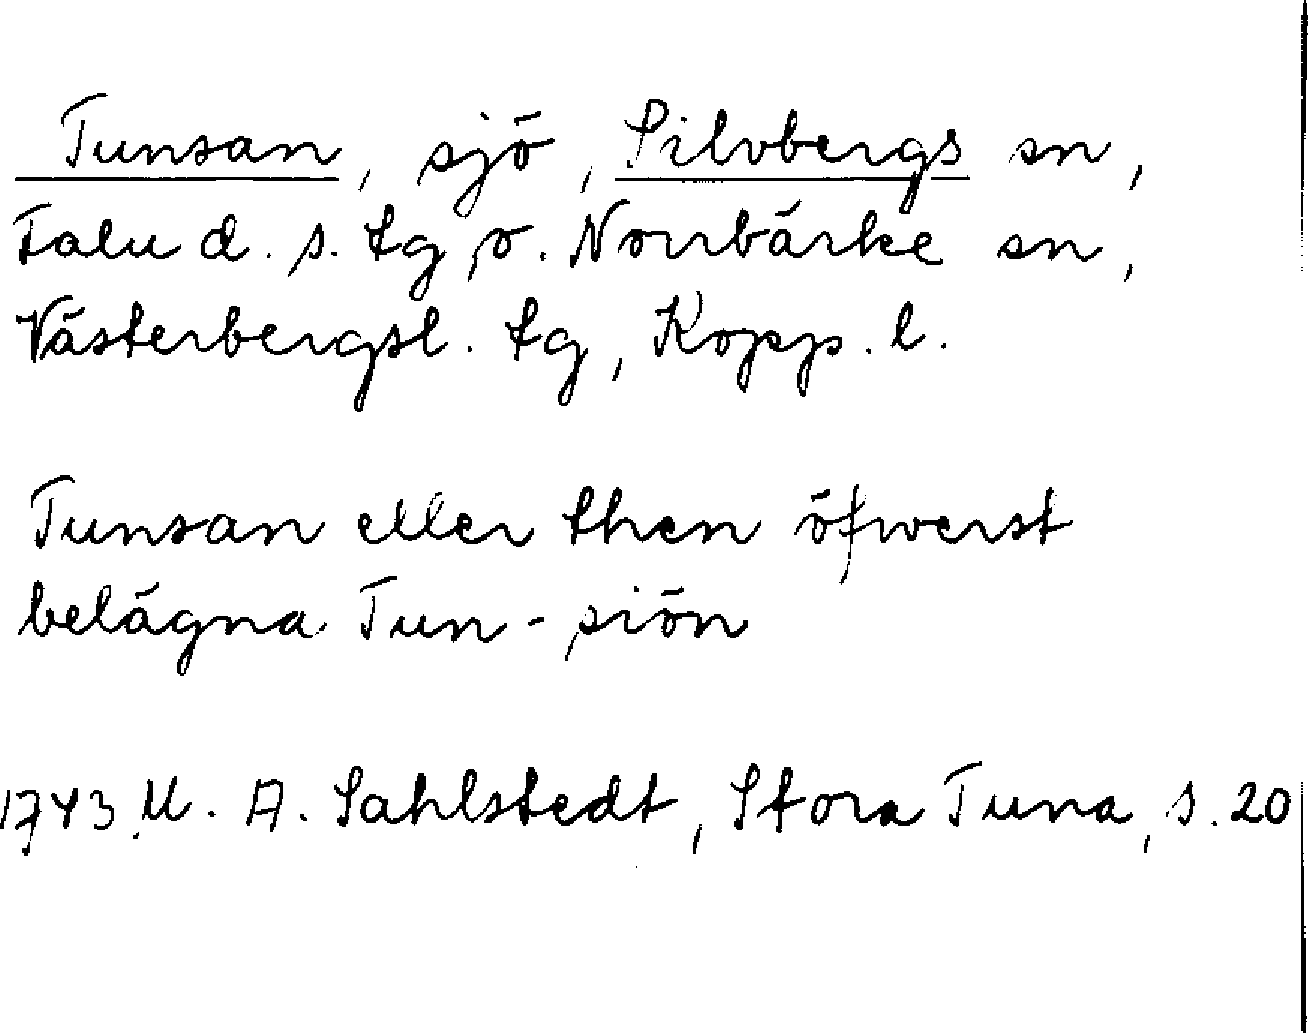 Tunsan, sjö, Silvbergs sn,
Falu d. s. tg, o. Norrbärke sn,
Västerbergsl. tg, Kopp. l.
Tunsan eller then öfwerst
belägna Tun-siön
1743 M. A. Sahlstedt, Stora Tuna, s. 20